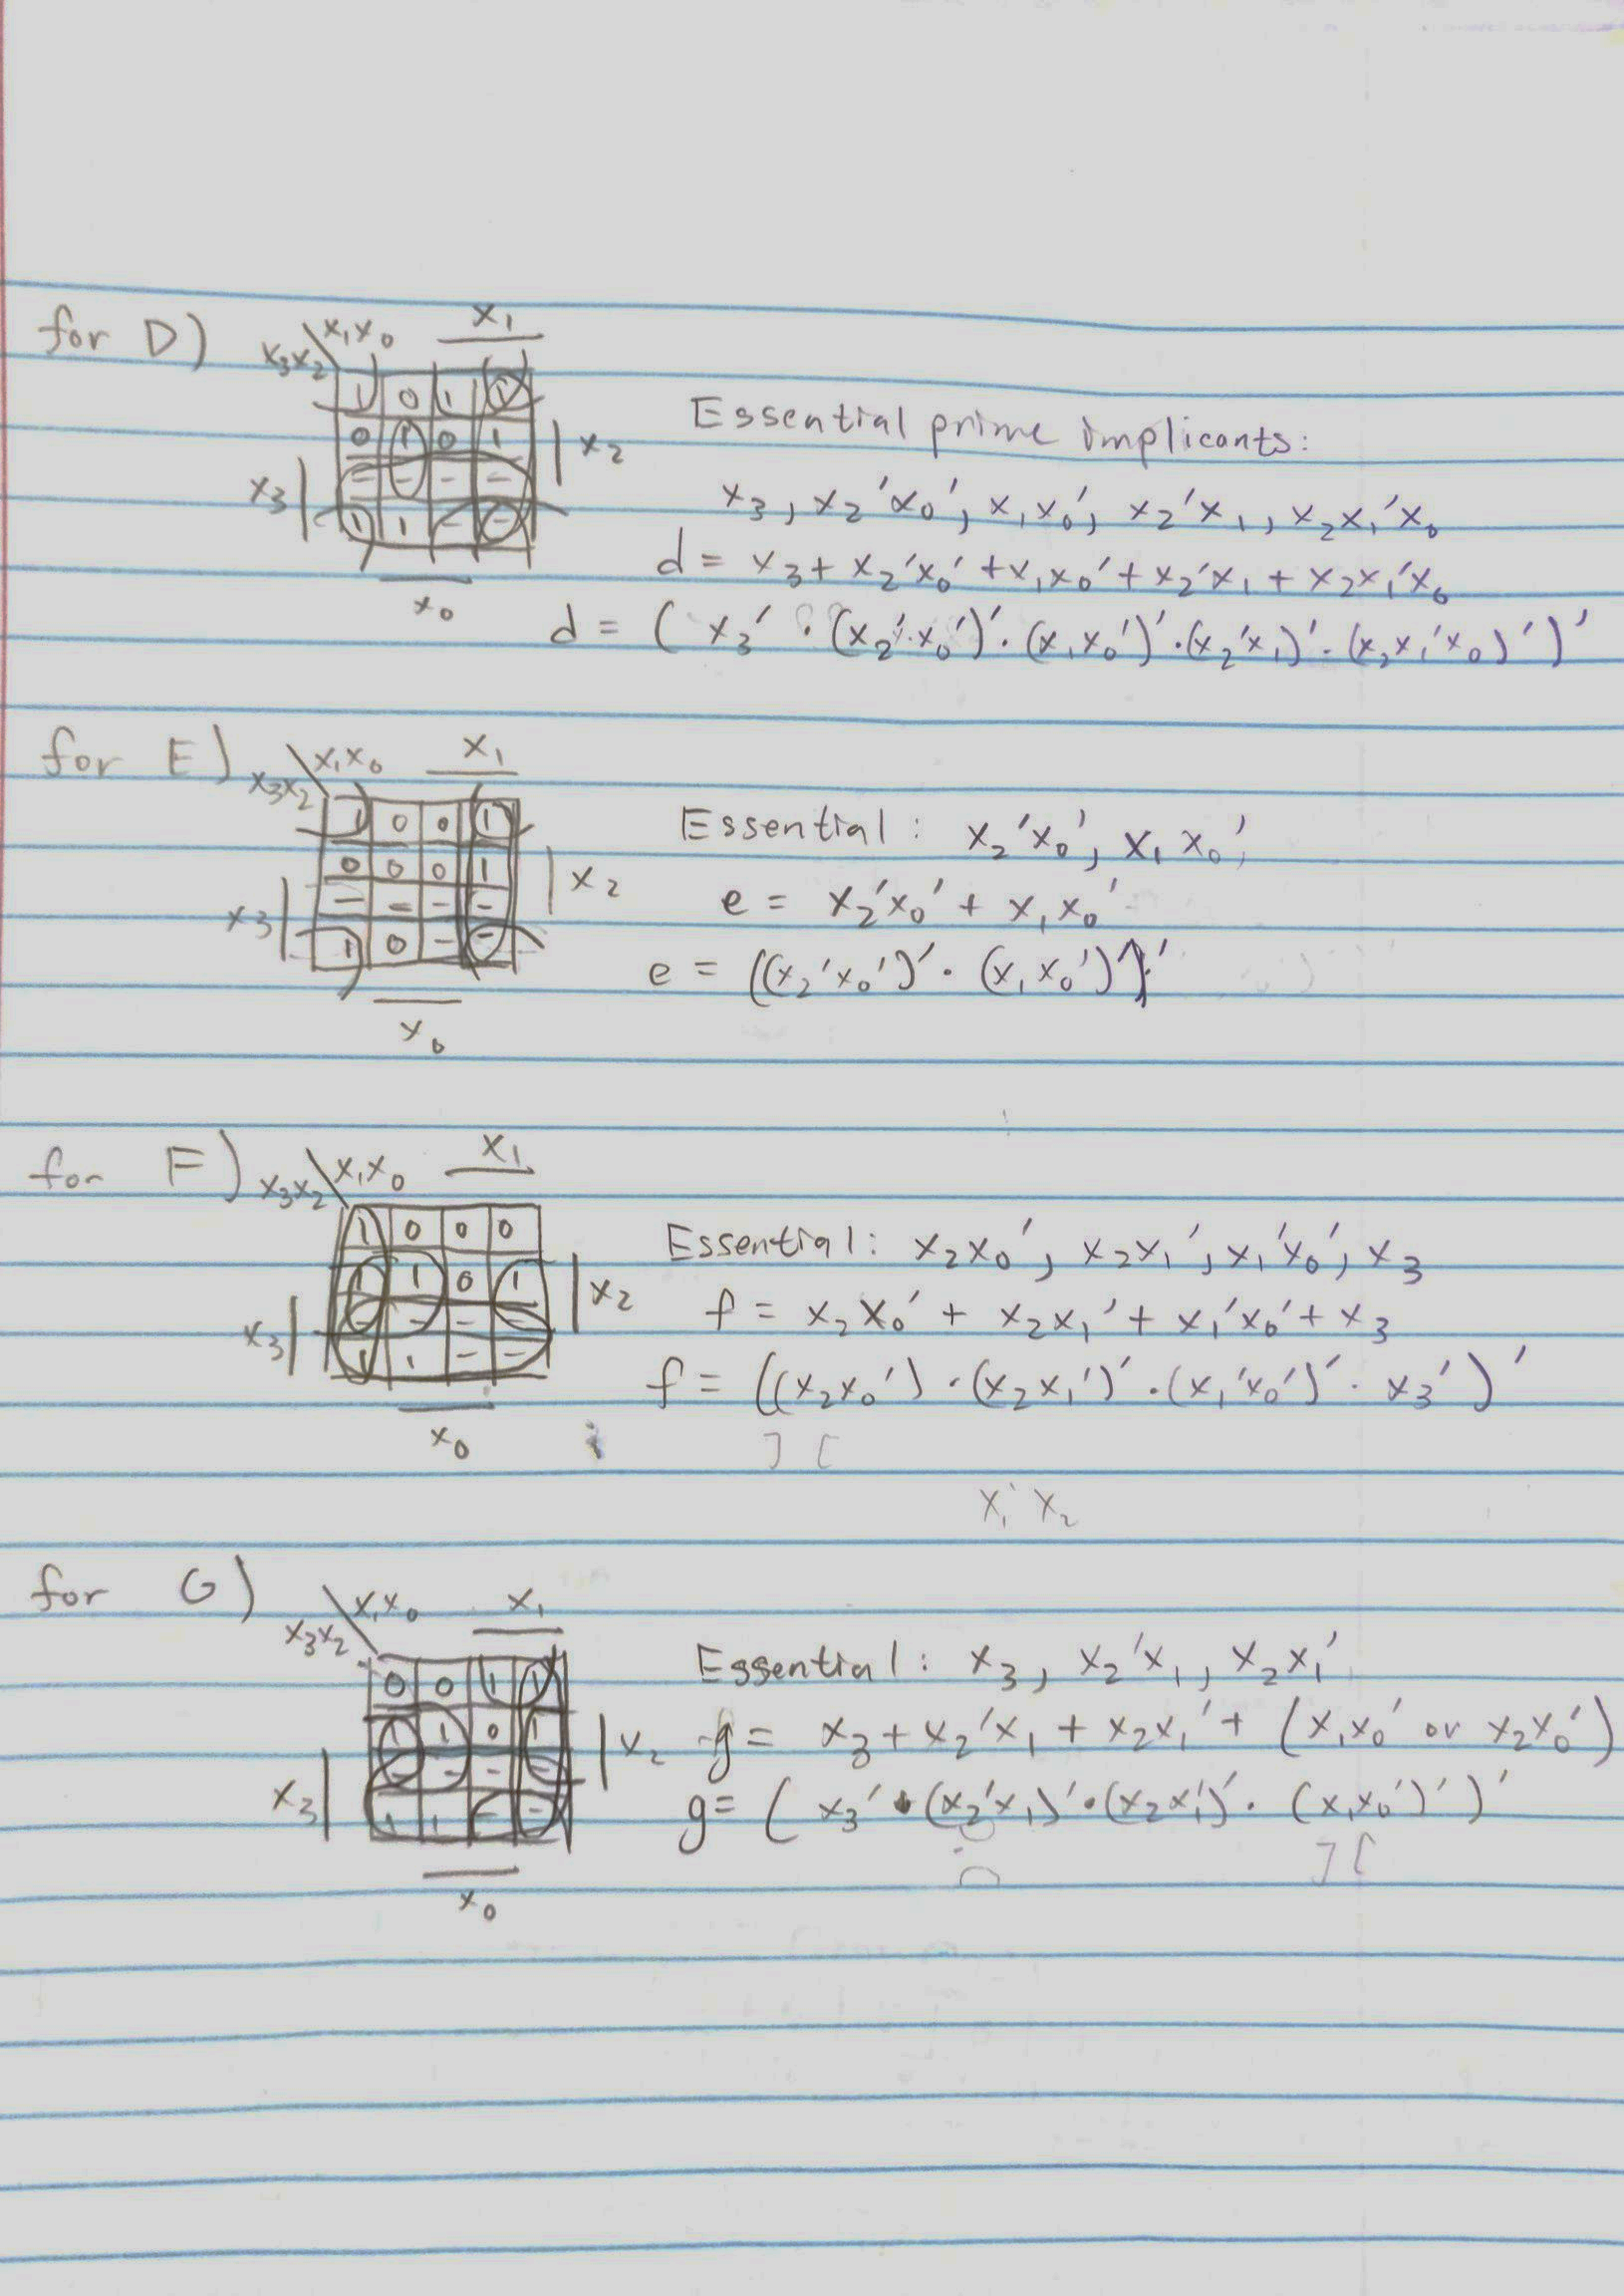 for D) x₃x₂ \ x₁x₀ x₁
1 0 1 1
0 1 0 1 x₂
x₃ - - - -
1 1 - -
x₀
Essential prime implicants:
x₃, x₂'x₀', x₁x₀', x₂'x₁, x₂x₁'x₀
d = x₃ + x₂'x₀' + x₁x₀' + x₂'x₁ + x₂x₁'x₀
d = (x₃' · (x₂'·x₀')'·(x₁x₀')'·(x₂'x₁)'·(x₂x₁'x₀)')'
for E) x₃x₂ \ x₁x₀ x₁
1 0 0 1
0 0 0 1 x₂
x₃ - - - -
1 0 - -
x₀
Essential: x₂'x₀', x₁x₀',
e = x₂'x₀' + x₁x₀'
e = ((x₂'x₀')' · (x₁x₀')')'
for F) x₃x₂ \ x₁x₀ x₁
1 0 0 0
1 1 0 1 x₂
x₃ - - - -
1 1 - -
x₀
Essential: x₂x₀', x₂x₁', x₁'x₀', x₃
f = x₂x₀' + x₂x₁' + x₁'x₀' + x₃
f = ((x₂x₀') · (x₂x₁')' · (x₁'x₀')' · x₃')'
] [
x₁' x₂
for G) x₃x₂ \ x₁x₀ x₁
0 0 1 1
1 1 0 1 x₂
x₃ - - - -
1 1 - -
x₀
Essential: x₃, x₂'x₁, x₂x₁'
g = x₃ + x₂'x₁ + x₂x₁' + (x₁x₀' or x₂x₀')
g = (x₃' · (x₂'x₁)' · (x₂x₁')' · (x₁x₀')')'
] [